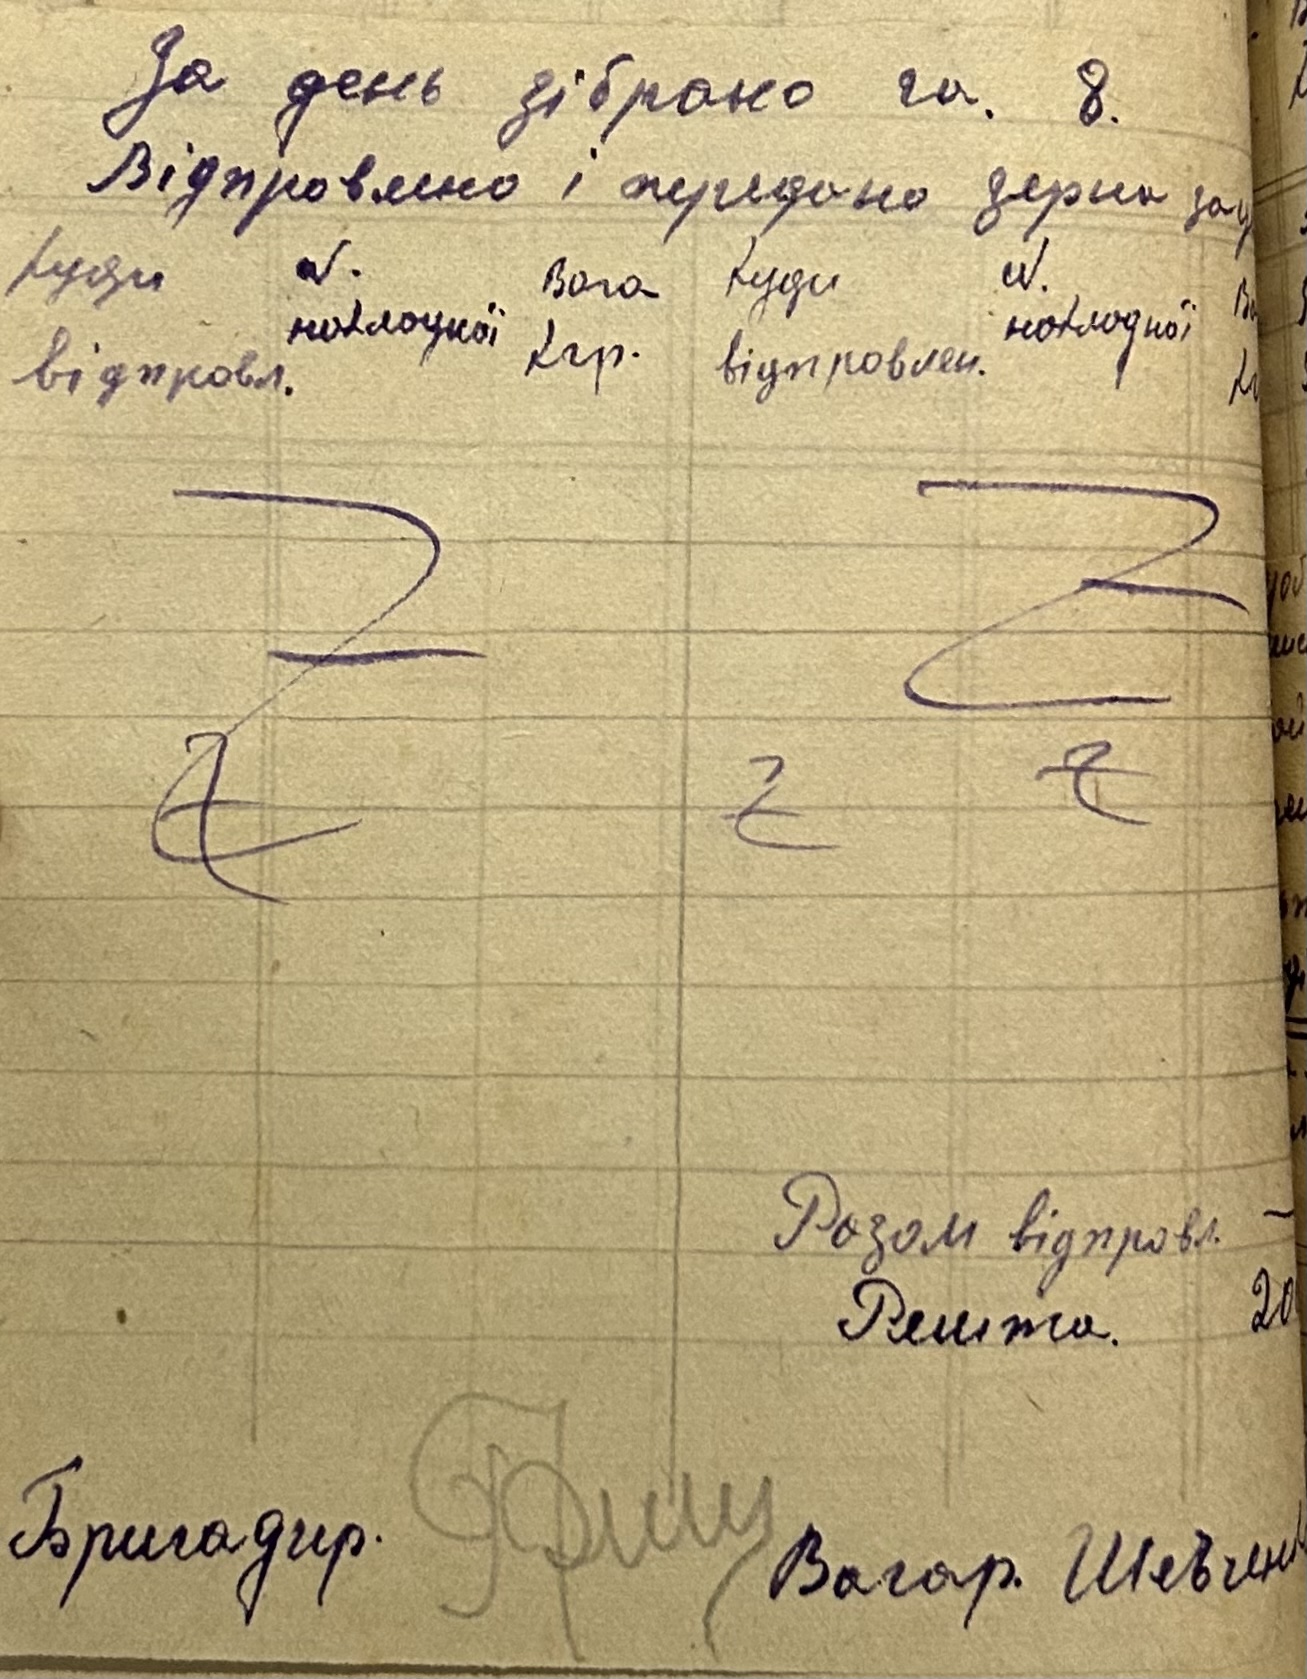 За день зібрано га. 8.
Відправлено і передано зерна за
Куди N. Вага Куди N.
накладної накладної
відправл. Кгр. відправлен.
Z Z
Z Z Z
Разом відправл. –
Решта. 20
Бригадир. Вагар. Шевченк